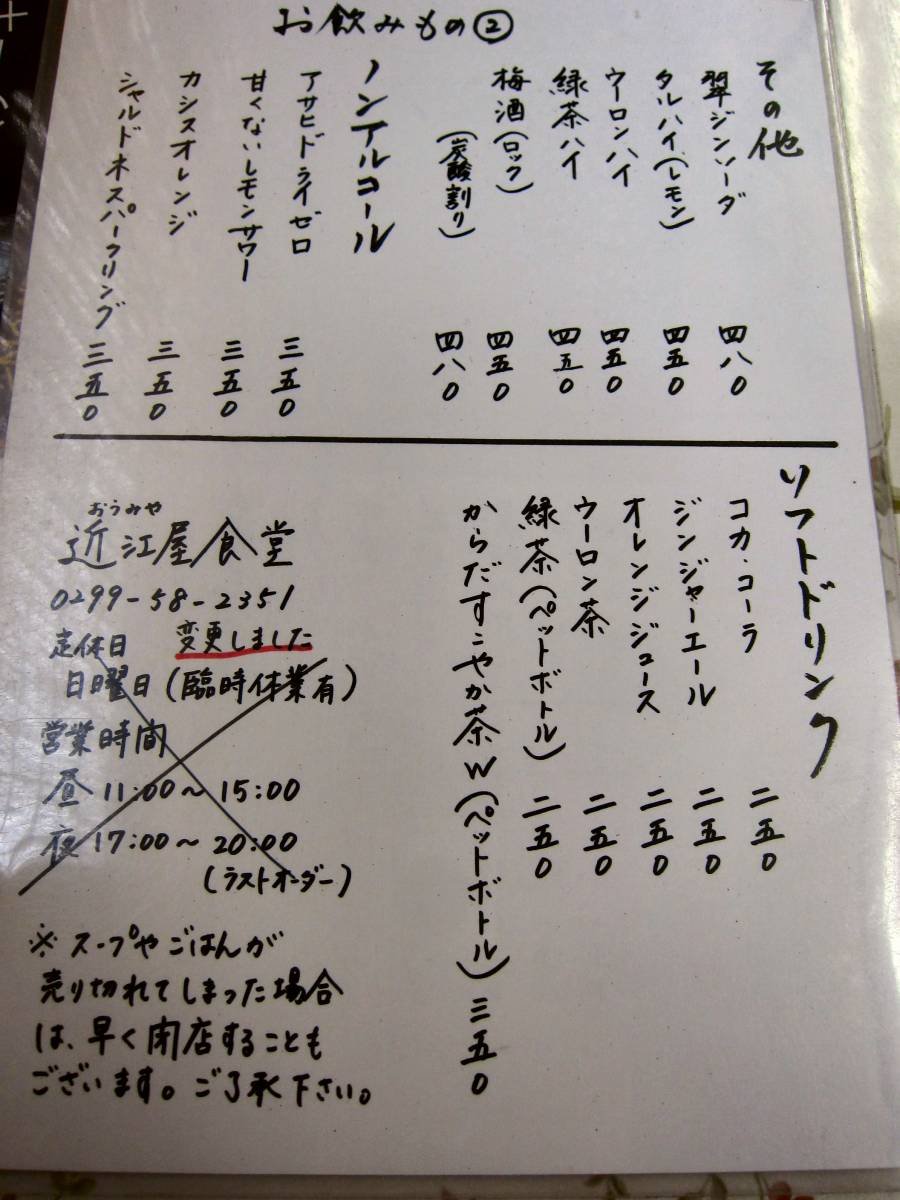 お飲みもの②
その他
翠ジンソーダ 四八〇
タルハイ(レモン) 四五〇
ウーロンハイ 四五〇
緑茶ハイ 四五〇
梅酒(ロック) 四五〇
(炭酸割り) 四八〇
ノンアルコール
アサヒドライゼロ 三五〇
甘くないレモンサワー 三五〇
カシスオレンジ 三五〇
シャルドネスパークリング 三五〇
ソフトドリンク
コカ・コーラ 二五〇
ジンジャーエール 二五〇
オレンジジュース 二五〇
ウーロン茶 二五〇
緑茶(ペットボトル) 二五〇
からだすこやか茶W(ペットボトル) 三五〇
おうみや
近江屋食堂
0299-58-2351
定休日 変更しました
日曜日(臨時休業有)
営業時間
昼 11:00~15:00
夜 17:00~20:00
(ラストオーダー)
※スープやごはんが
売り切れてしまった場合
は、早く閉店することも
ございます。ご了承下さい。